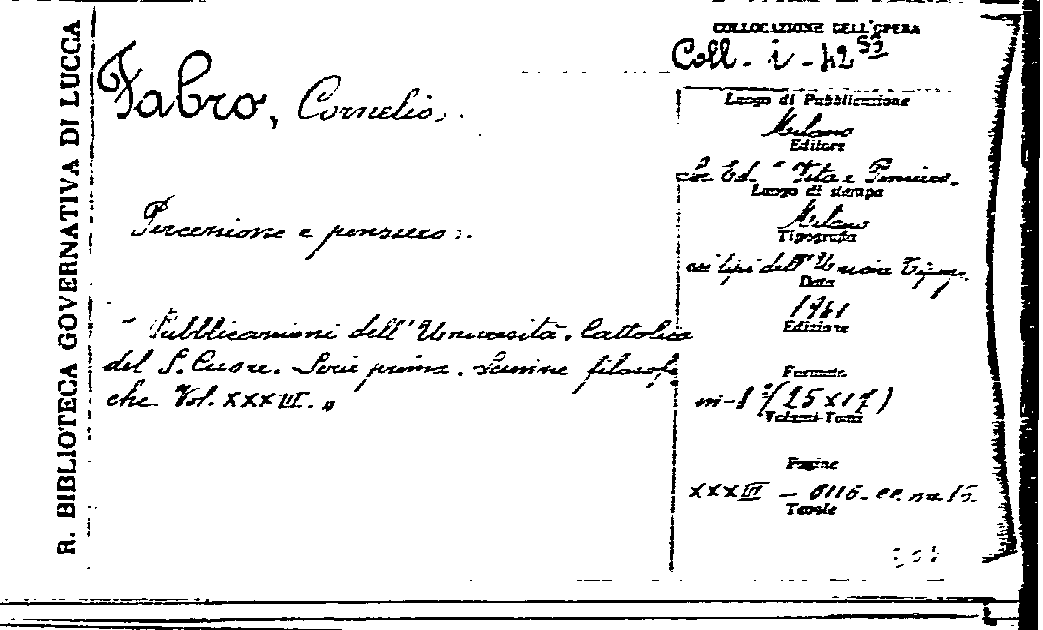 R. BIBLIOTECA GOVERNATIVA DI LUCCA
Fabro, Cornelio.
Percezione e pensiero.
" Pubblicazioni dell'Università Cattolica
del S. Cuore. Serie prima. Scienze filosofi
che Vol. XXXVII. "
COLLOCAZIONE DELL'OPERA
Coll. i - 42 53
Luogo di Pubblicazione
Milano
Editore
Soc. Ed. " Vita e Pensiero.
Luogo di stampa
Milano
Tipografia
coi tipi dell'
Data
1941
Edizione
Formato
in-8° (25 x 17)
Volumi-Tomi
Pagine
Tavole